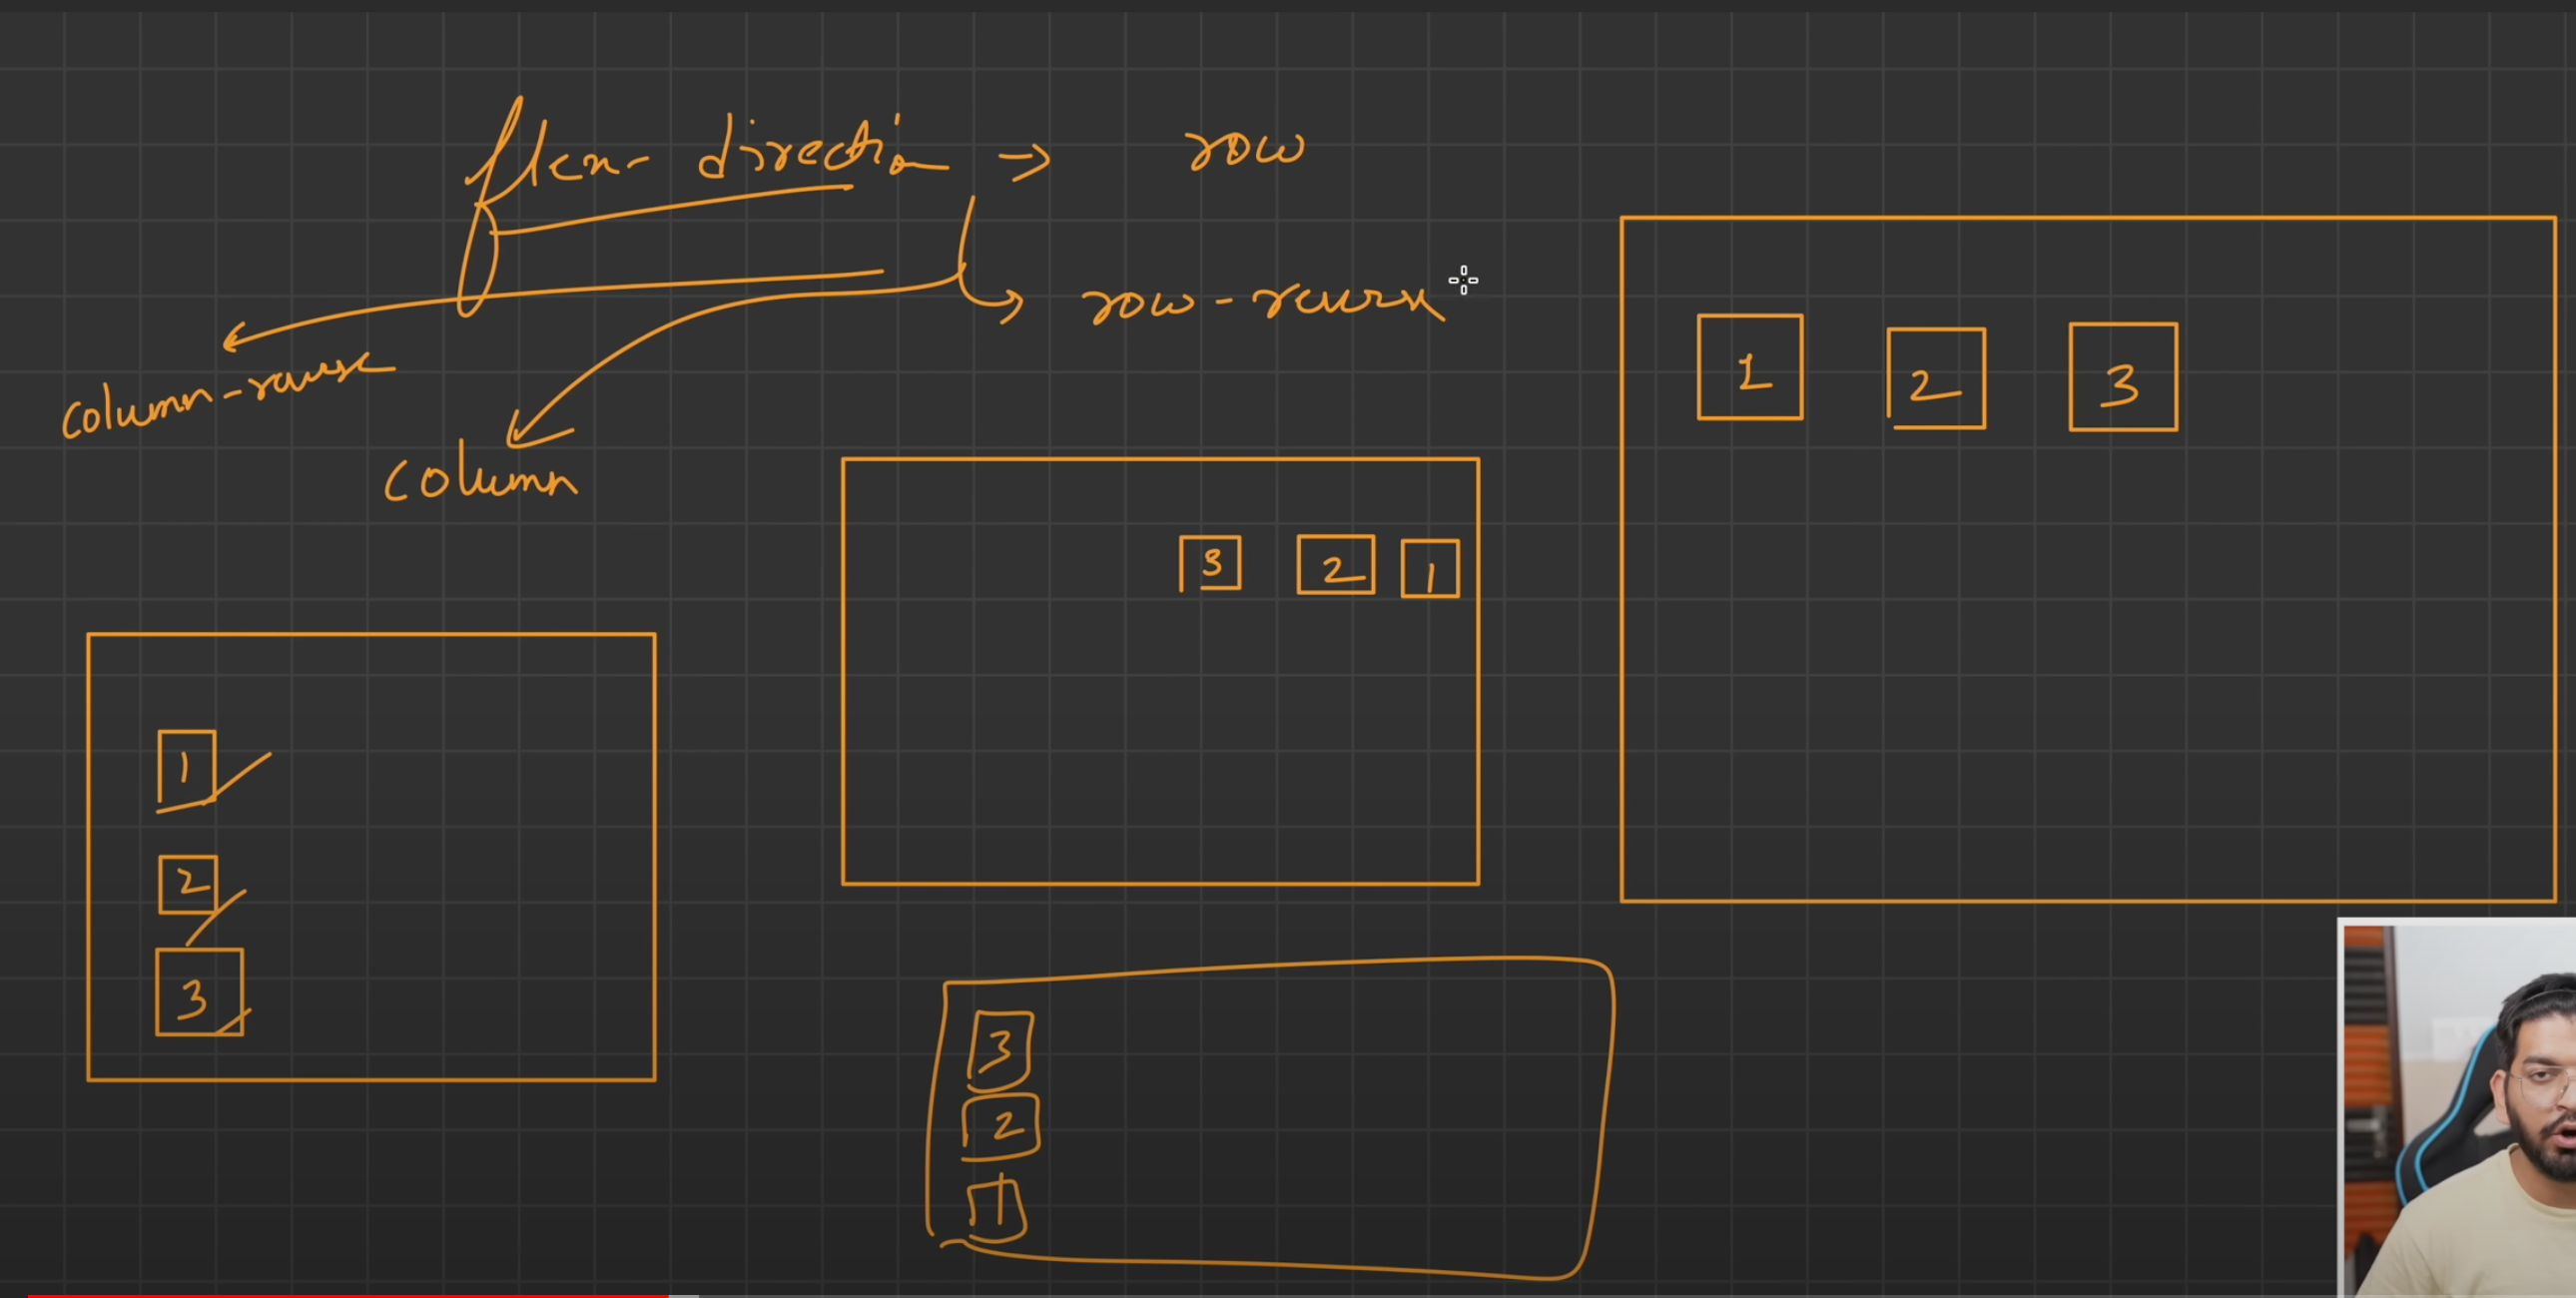 flex-direction → row
row-reverse
column-reverse
column
1 2 3
3 2 1
1
2
3
3
2
1